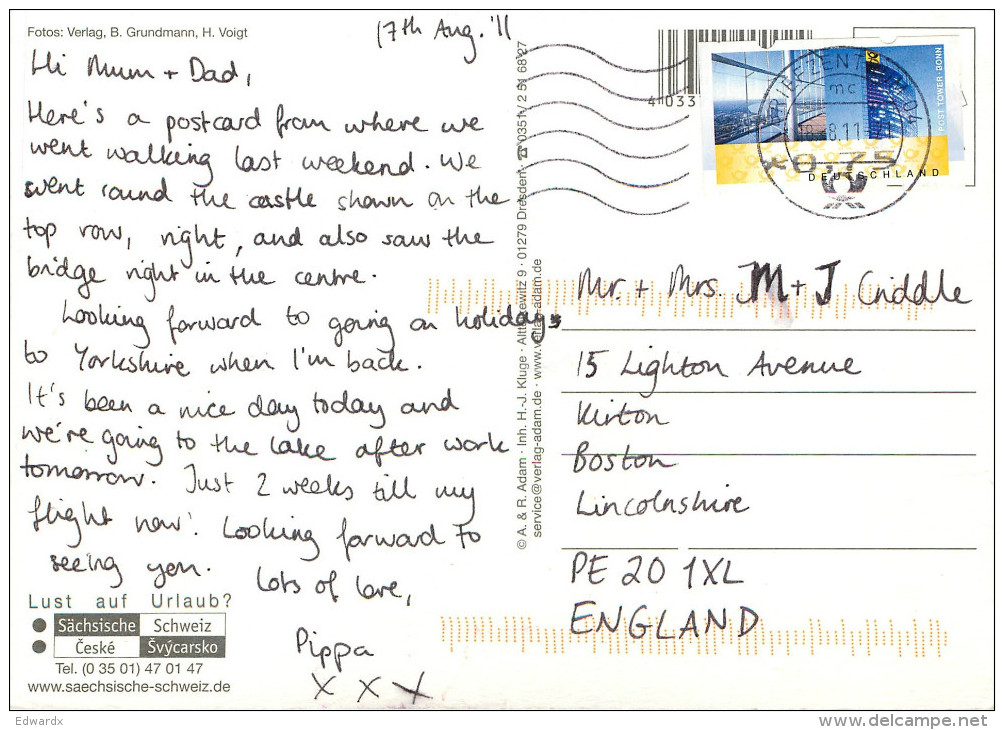 Fotos: Verlag, B. Grundmann, H. Voigt
17th Aug. '11
Hi Mum + Dad,
Here's a postcard from where we
went walking last weekend. We
went round the castle shown on the
top row, right, and also saw the
bridge right in the centre.
Looking forward to going on holidays
to Yorkshire when I'm back.
It's been a nice day today and
we're going to the lake after work
tomorrow. Just 2 weeks till my
flight now! Looking forward to
seeing you.
Lots of love,
Pippa
x x x
Lust auf Urlaub?
Sächsische Schweiz
České Švýcarsko
Tel. (0 35 01) 47 01 47
www.saechsische-schweiz.de
© A. & R. Adam · Inh. H.-J. Kluge · 9 · 01279 Dresden · ☎ 0351 / 2 51 68 27
service@verlag-adam.de · www.verlag-adam.de
4 033
POST TOWER · BONN
0,75
DEUTSCHLAND
Mr. + Mrs. M + J Criddle
15 Lighton Avenue
Kirton
Boston
Lincolnshire
PE20 1XL
ENGLAND
Edwardx
www.delcampe.net